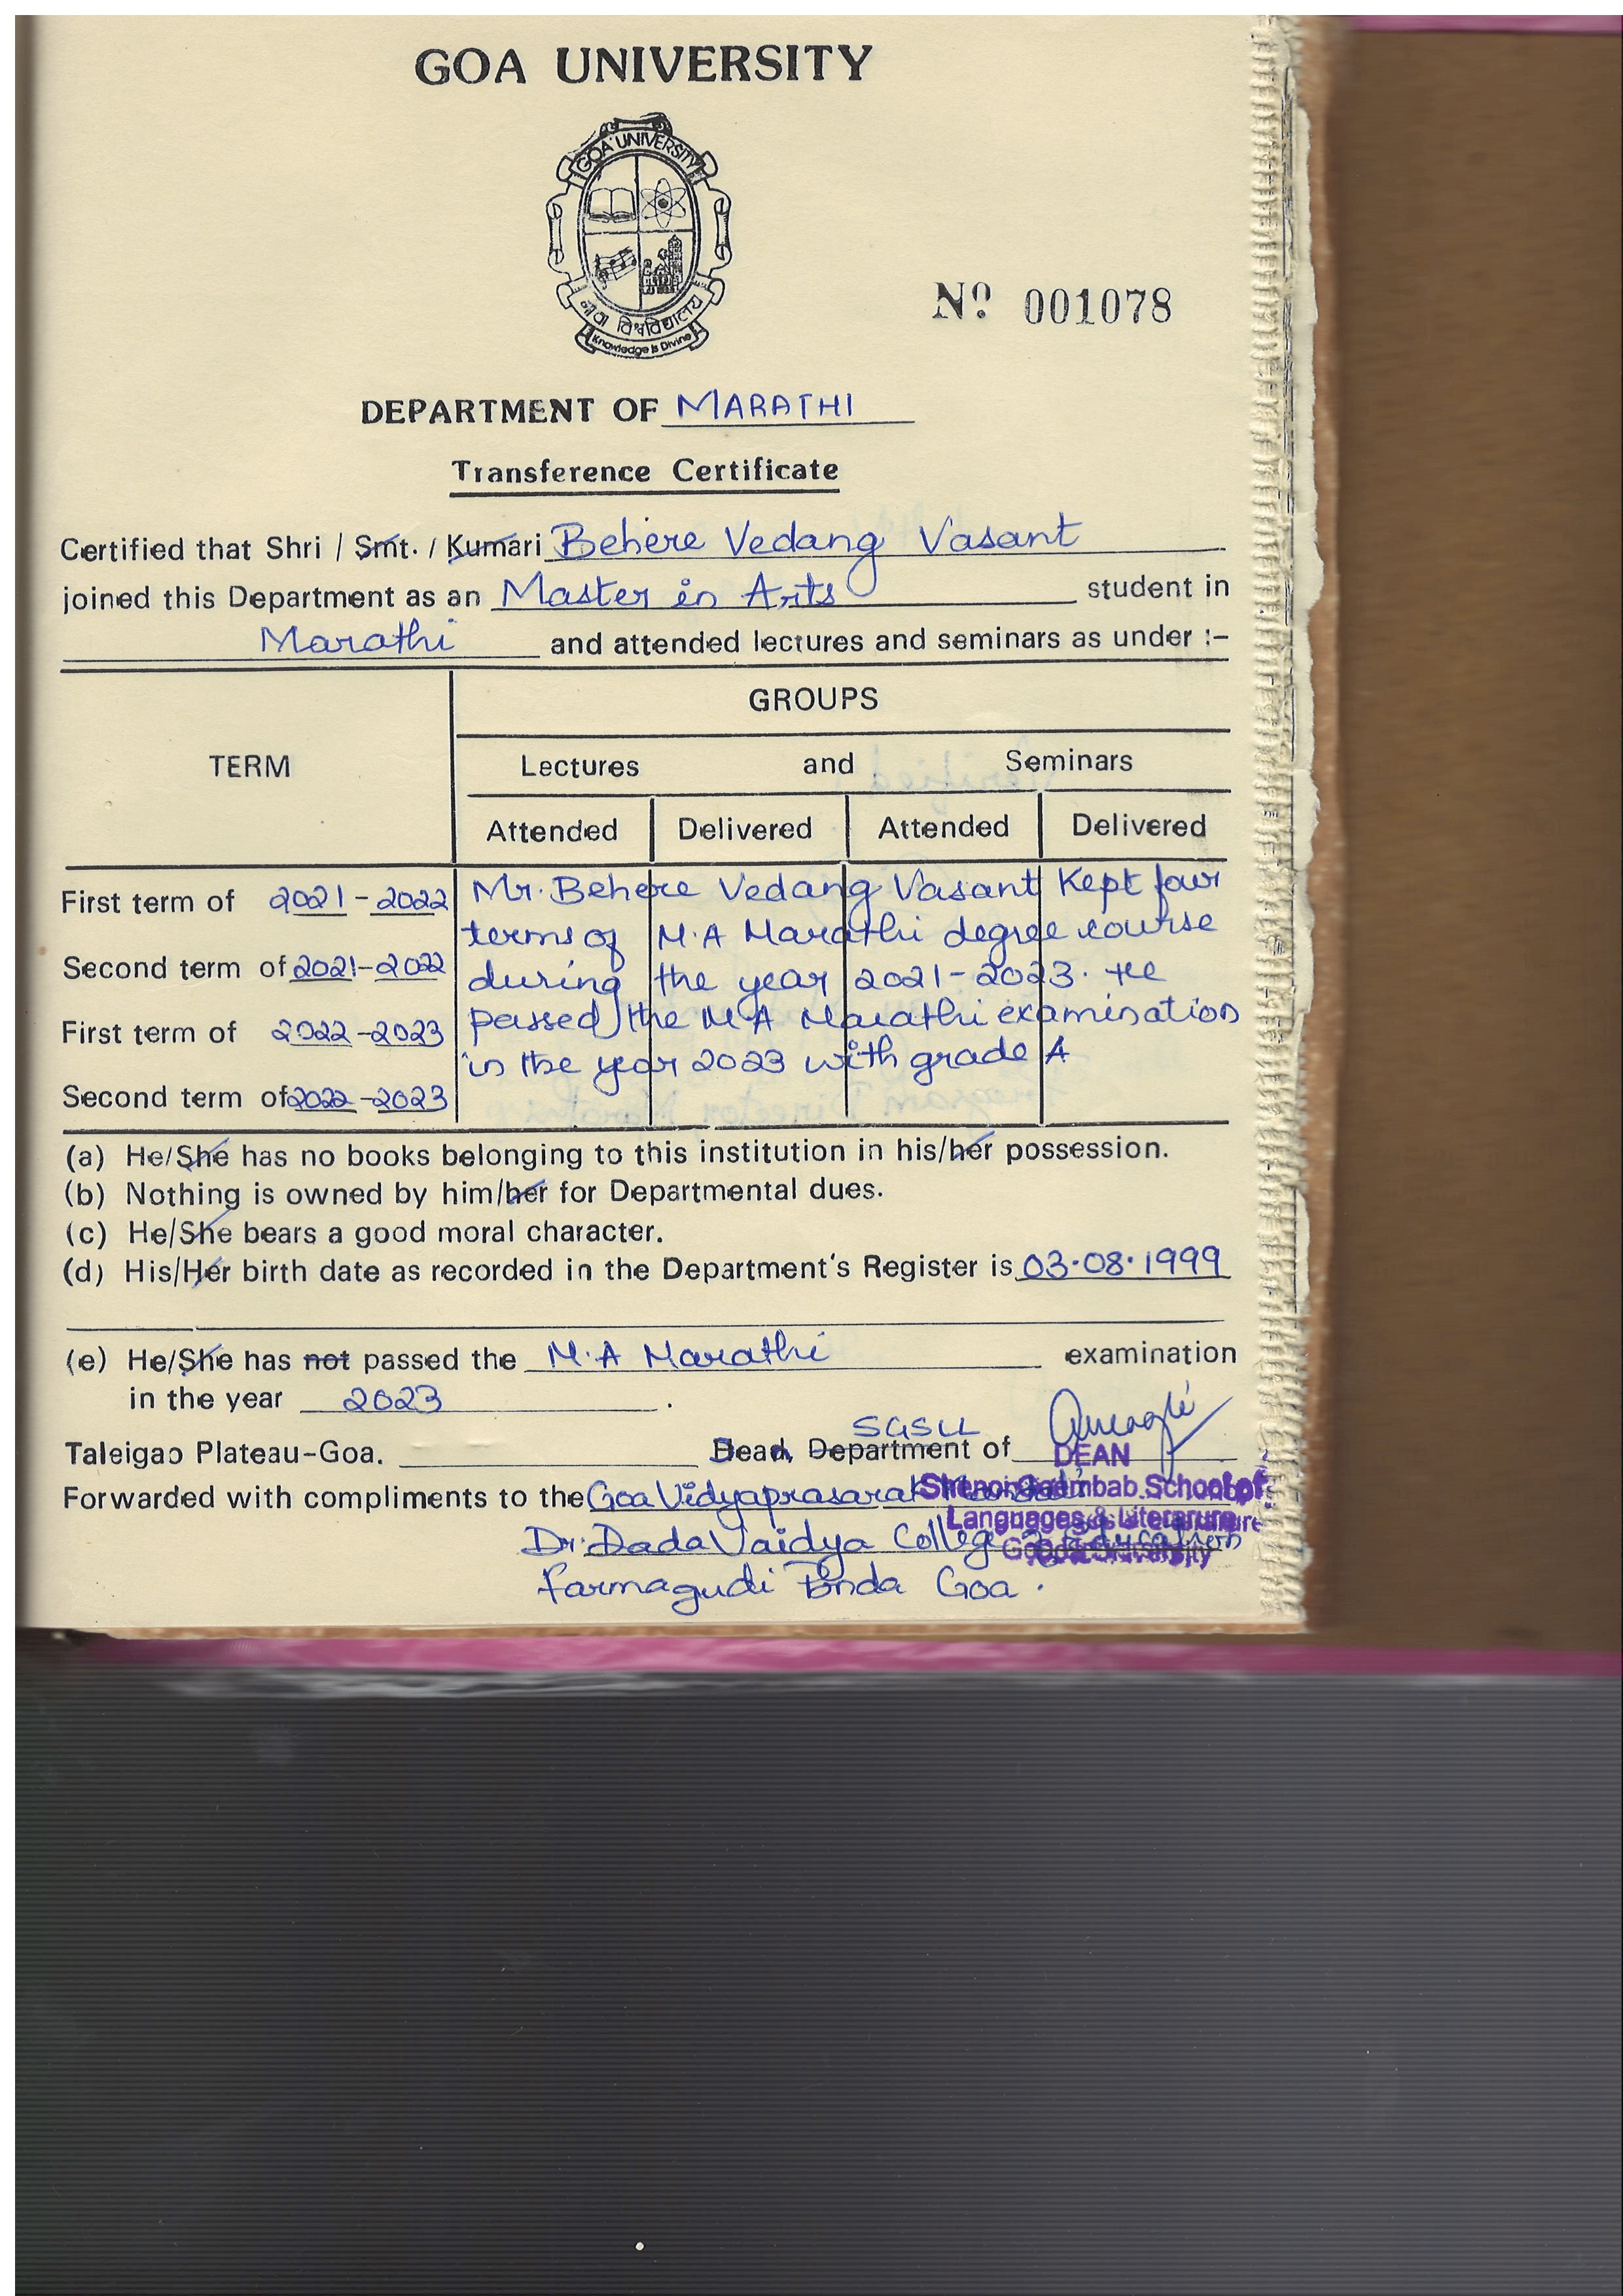 GOA UNIVERSITY
GOA UNIVERSITY
गोंय विश्वविद्यालय
Knowledge is Divine
Nº 001078
DEPARTMENT OF MARATHI
Transference Certificate
Certified that Shri / Smt. / Kumari Behere Vedang Vasant
joined this Department as an Master in Arts student in
Marathi and attended lectures and seminars as under :-
GROUPS
TERM
Lectures and Seminars
Attended Delivered Attended Delivered
First term of 2021-2022 Mr. Behere Vedang Vasant Kept four
terms of M.A Marathi degree course
Second term of 2021-2022 during the year 2021-2023. He
First term of 2022-2023 passed the M A Marathi examination
in the year 2023 with grade A
Second term of 2022-2023
(a) He/She has no books belonging to this institution in his/her possession.
(b) Nothing is owned by him/her for Departmental dues.
(c) He/She bears a good moral character.
(d) His/Her birth date as recorded in the Department's Register is 03.08.1999
(e) He/She has not passed the M.A Marathi examination
in the year 2023.
SGSLL
Taleigao Plateau-Goa. Dean, Department of
DEAN
Forwarded with compliments to the Goa Vidyaprasarak
Shenoi Goembab School of
Languages & Literature
Dr. Dada Vaidya College of Education
Goa University
Farmagudi Ponda Goa.